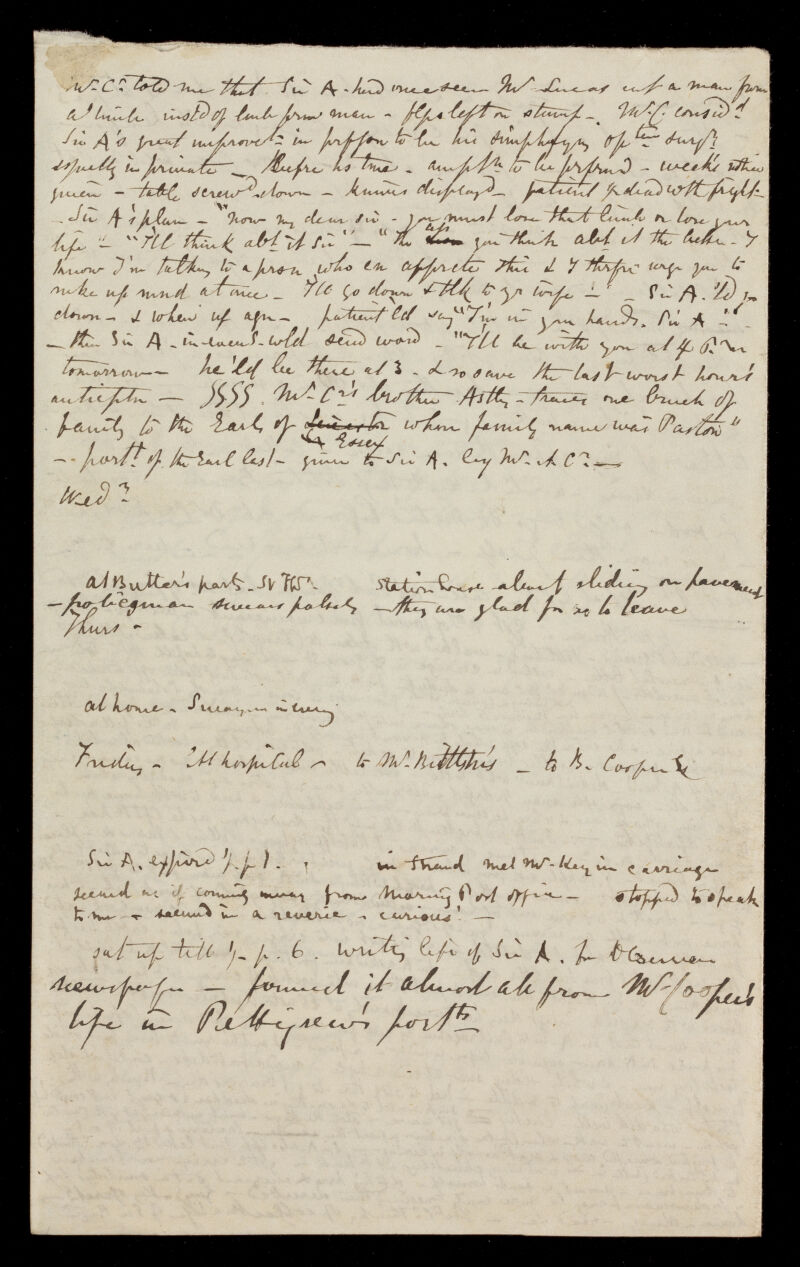 Mr. Cr. told me that Sir A. had once seen Mr Lucas cut a man from
a limb instd of limb from man - flps left on stump -. Mr. C. considd
Sir A's great improvet in proffson to be his simplifyg optn surgry
espcelly in private - Before his tme - amptn to be prfrmd - week's
- table screwd down - knives displayd - patient dead wth fright -
- Sir A's plan - "now my dear sir - you must lose that limb or lose your
life" - "I'll think abt. it Sir" - "the less you think abt it the better - I
know I'm talkng to a prson who cn apprcte this & I thrfre urge you to
mke up mnd at once - I'll go down & tlk to yr wife" - Sir A. 'ld go
down - & when up agn - patient 'ld say "I'm in your hands. Sir A."
- then Sir A - in evens wld send word - "I'll be with you at 4 P.m
tomorrow - he'ld be there at 3 - & so save the last worst hour's
anticiptn - §§§§. Mr. Cr's brother Astly - traces one brnch of
family to the Earls of or Essex whose family name was Paston"
- portt. of the Earl last - given to Sir A. by Mr. A Cr. -
Wed.
at Butter's party. station house about sliding on pavement
- policeman swears falsely - they are glad for us to leave
Thurs -
at home - in eveng
Friday - At hospital - to Mr. - to B. Cooper's
Sir A. expired ½ p 1. in Strand met Mr. Key in carriage
seemed as if coming away from Morning Post office - stopped to speak
to me - seemed in a reverie - curious! -
sat up till ½ p. 6. writing life of Sir A. for
newspaper - formed it almost all from Mr Cooper's
life in Pettigrew's portts